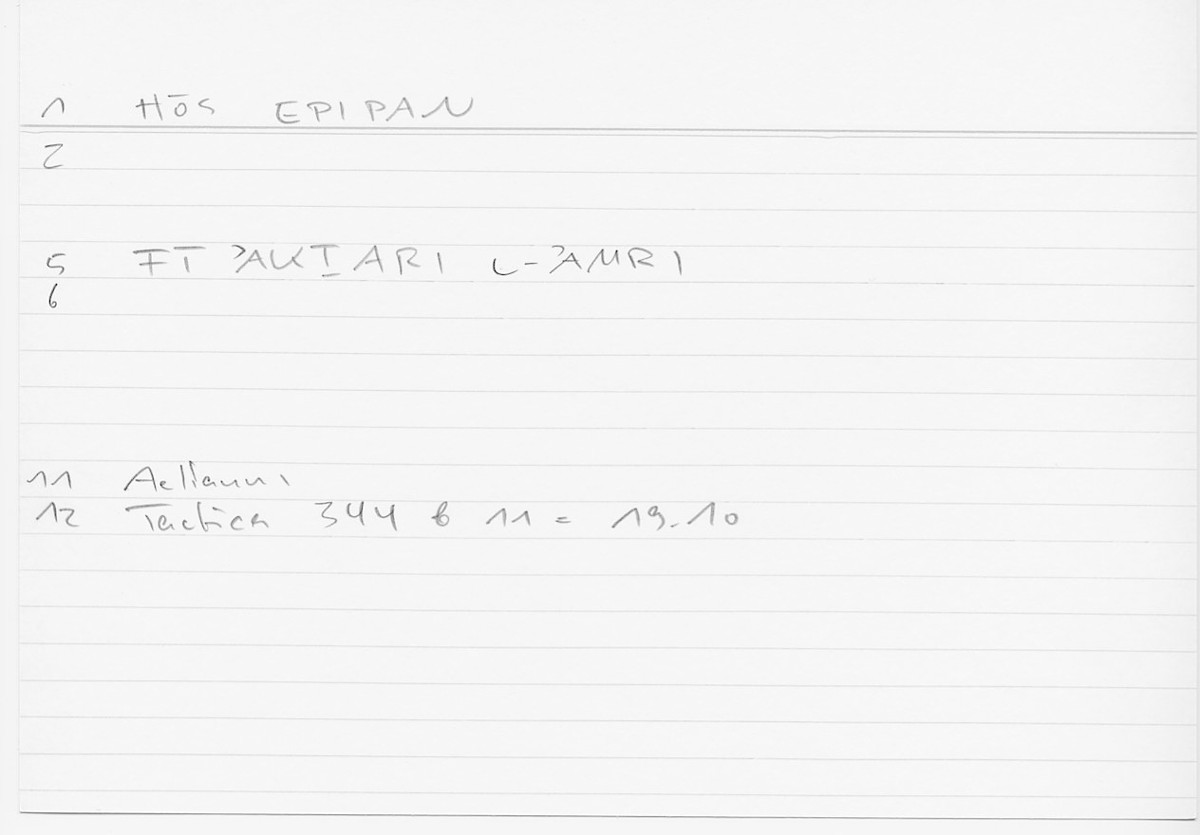 1 HŌS EPIPAN
2
5 FĪ ʾAKṮARI L-ʾAMRI
6
11 Aelianus
12 Tactica 344 b 11 = 19.10